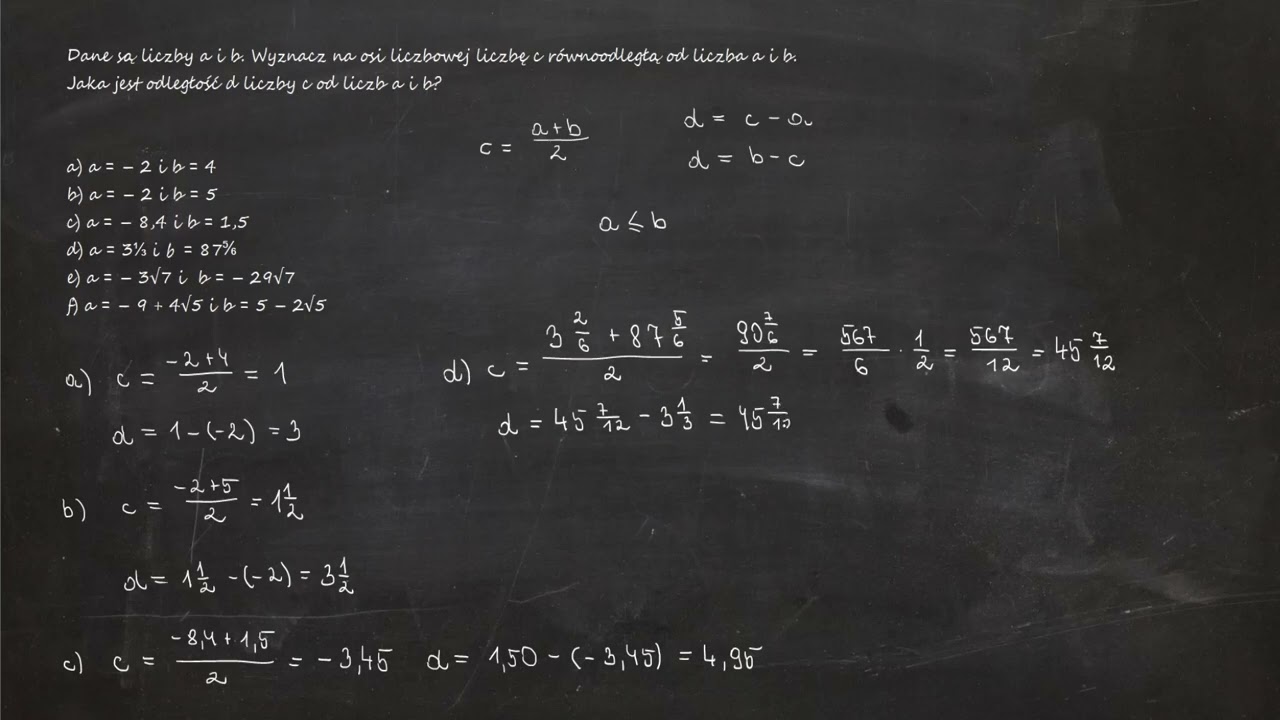 Dane są liczby a i b. Wyznacz na osi liczbowej liczbę c równoodległą od liczba a i b.
Jaka jest odległość d liczby c od liczb a i b?
c = \frac{a+b}{2}
d = c - a
d = b - c
a ≤ b
a) a = - 2 i b = 4
b) a = - 2 i b = 5
c) a = - 8,4 i b = 1,5
d) a = 3⅓ i b = 87⅚
e) a = - 3√7 i b = - 29√7
f) a = - 9 + 4√5 i b = 5 - 2√5
a) c = \frac{-2+4}{2} = 1
d = 1 - (-2) = 3
b) c = \frac{-2+5}{2} = 1\frac{1}{2}
d = 1\frac{1}{2} - (-2) = 3\frac{1}{2}
c) c = \frac{-8,4+1,5}{2} = -3,45 d = 1,50 - (-3,45) = 4,95
d) c = \frac{3\frac{2}{6} + 87\frac{5}{6}}{2} = \frac{90\frac{7}{6}}{2} = \frac{567}{6} · \frac{1}{2} = \frac{567}{12} = 45\frac{7}{12}
d = 45\frac{7}{12} - 3\frac{1}{3} = 45\frac{7}{12}